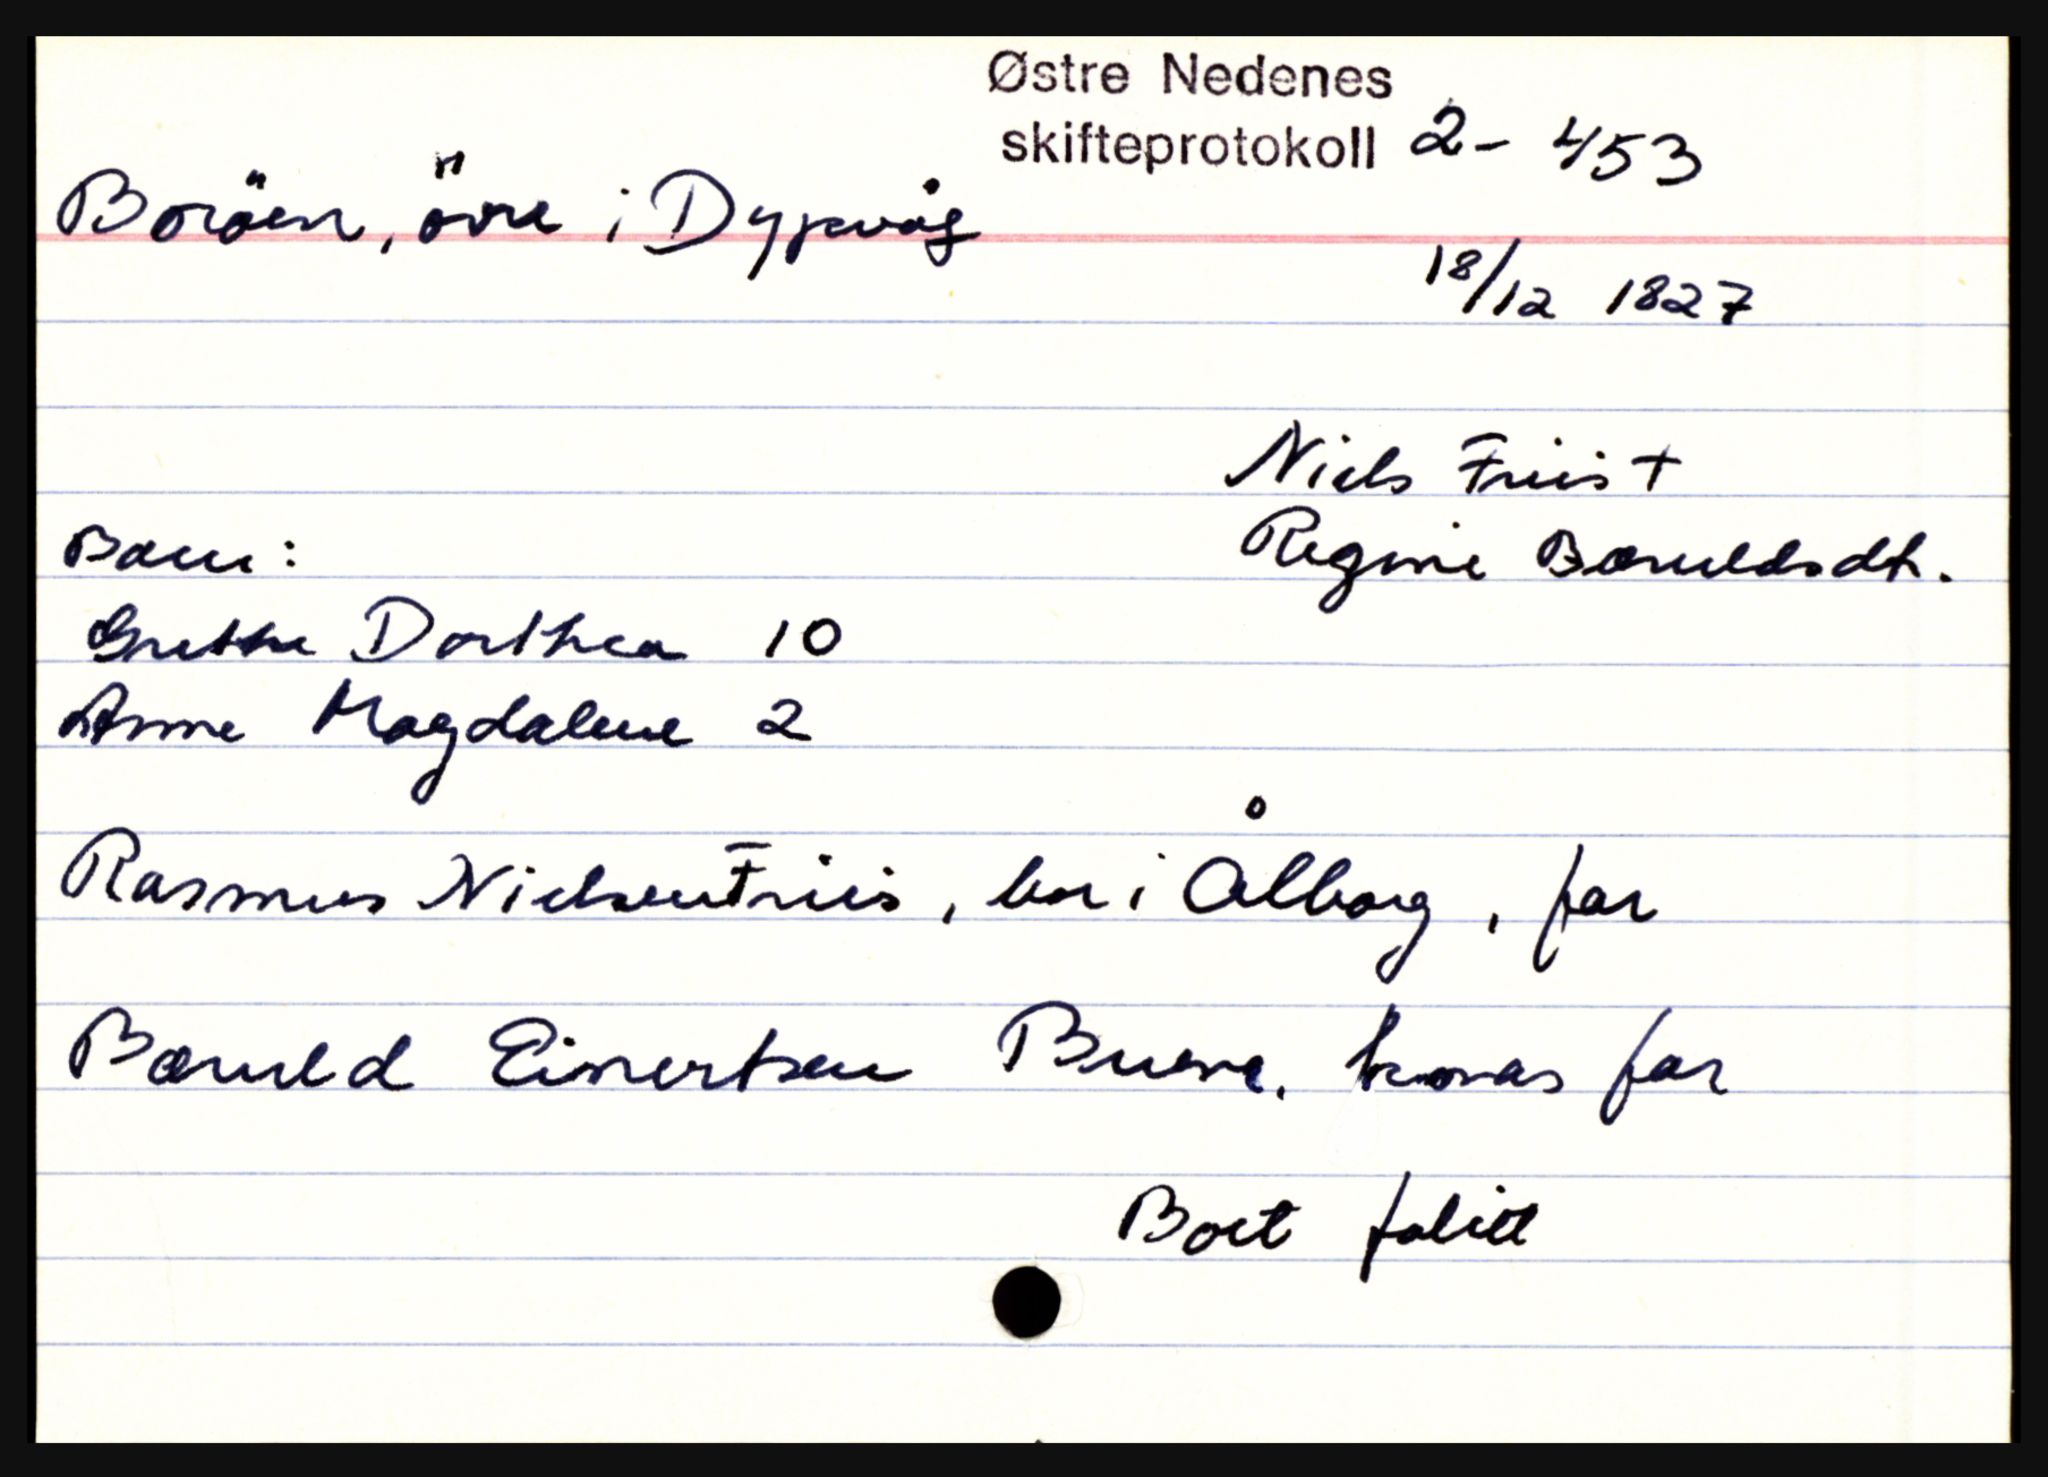 Østre Nedenes
skifteprotokoll 2-453
Boröen, övre i Dypvåg
18/12 1827
Niels Friis +
Regine Bæruldsdt.
Barn:
Grethe Dorthea 10
Anne Magdalene 2
Rasmus Nielsen Friis, bor i Ålborg, far
Bæruld Einertsen Buene, konas far
Boet falitt